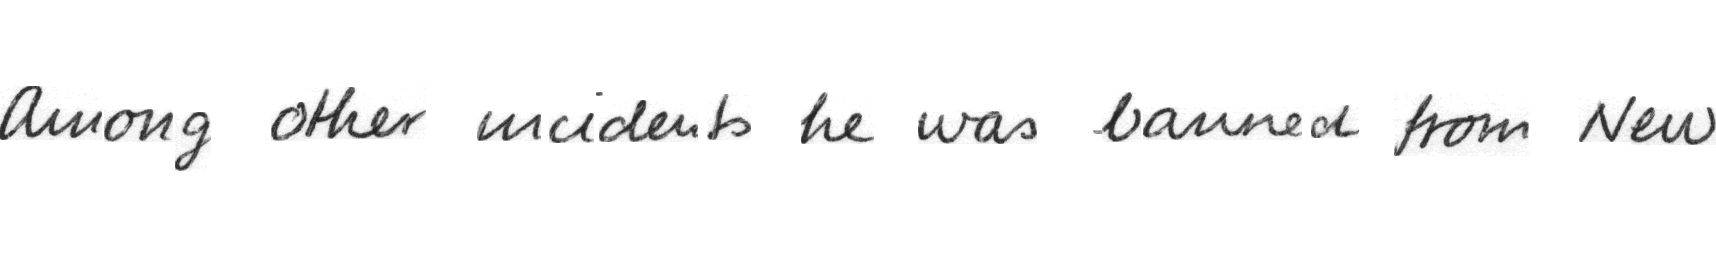 Among other incidents he was banned from New